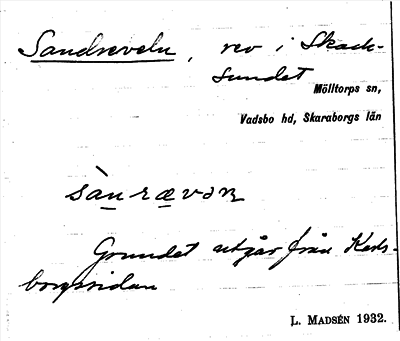 Sandreveln, rev i Skack-
sundet
Mölltorps sn,
Vadsbo hd, Skaraborgs län
sàn rævan
Grundet utgår från Karls-
borgssidan
L. MADSÉN 1932.